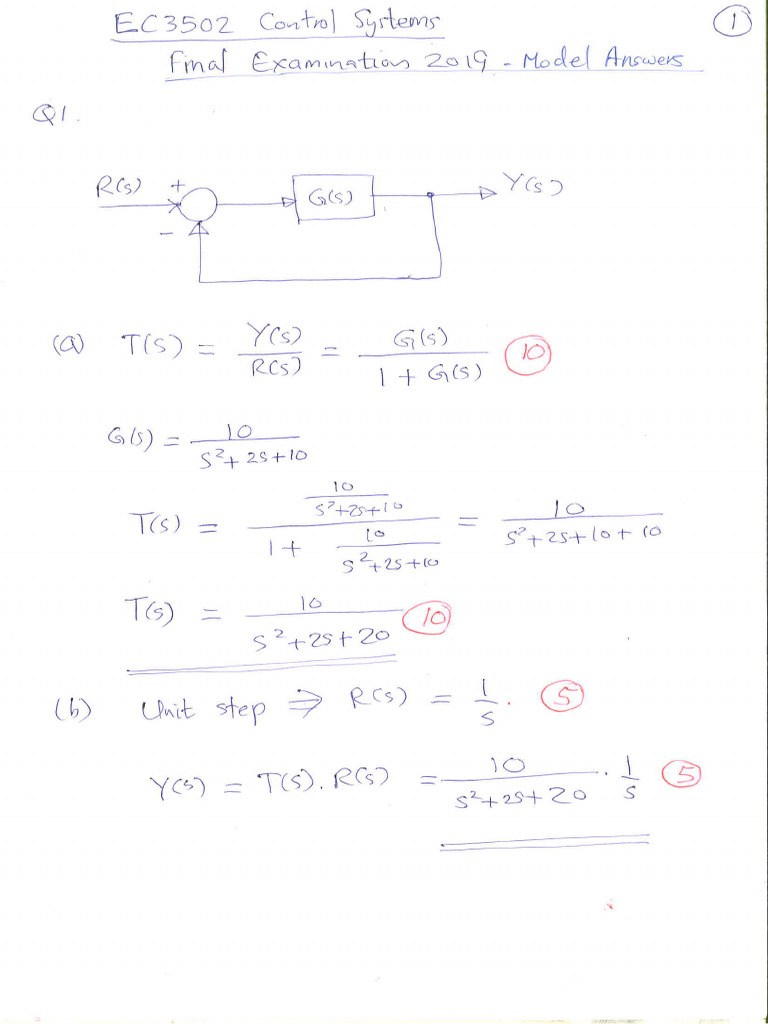 EC3502 Control Systems
①
Final Examination 2019 - Model Answers
Q1.
R(s) + G(s) Y(s)
−
(a) T(s) = Y(s)/R(s) = G(s)/(1 + G(s)) 10
G(s) = 10/(s²+2s+10)
T(s) = (10/(s²+2s+10))/(1 + 10/(s²+2s+10)) = 10/(s²+2s+10+10)
T(s) = 10/(s²+2s+20) 10
(b) Unit step ⇒ R(s) = 1/s. 5
Y(s) = T(s). R(s) = 10/(s²+2s+20) . 1/s 5